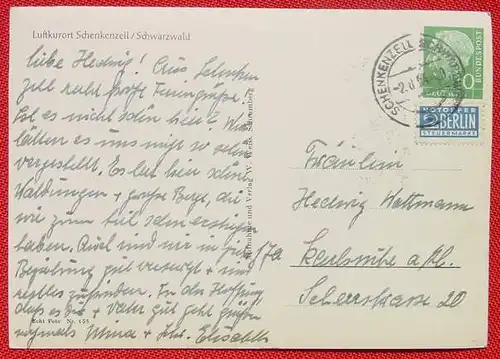 Luftkurort Schenkenzell / Schwarzwald
Liebe Hedwig! Aus Schenken-
zell recht Grüße
Ist es nicht schön hier? Wir
hätten es uns nicht so schön
vorgestellt. Es hat hier schöne
Waldungen + große Berge, die
wir zum Teil schon erstiegen
haben. Auch sind wir in jeder
Beziehung gut versorgt + sind
restlos zufrieden. In der Hoffnung
daß es + Vater gut geht grüßen
nochmals Elisabeth
Echt Foto Nr. 155
Aufnahme und Verlag
SCHENKENZELL
DEUTSCHE BUNDESPOST
NOTOPFER
2 BERLIN
STEUERMARKE
Fräulein
Hedwig Wattmann
17a
Karlsruhe a/Rh.
20